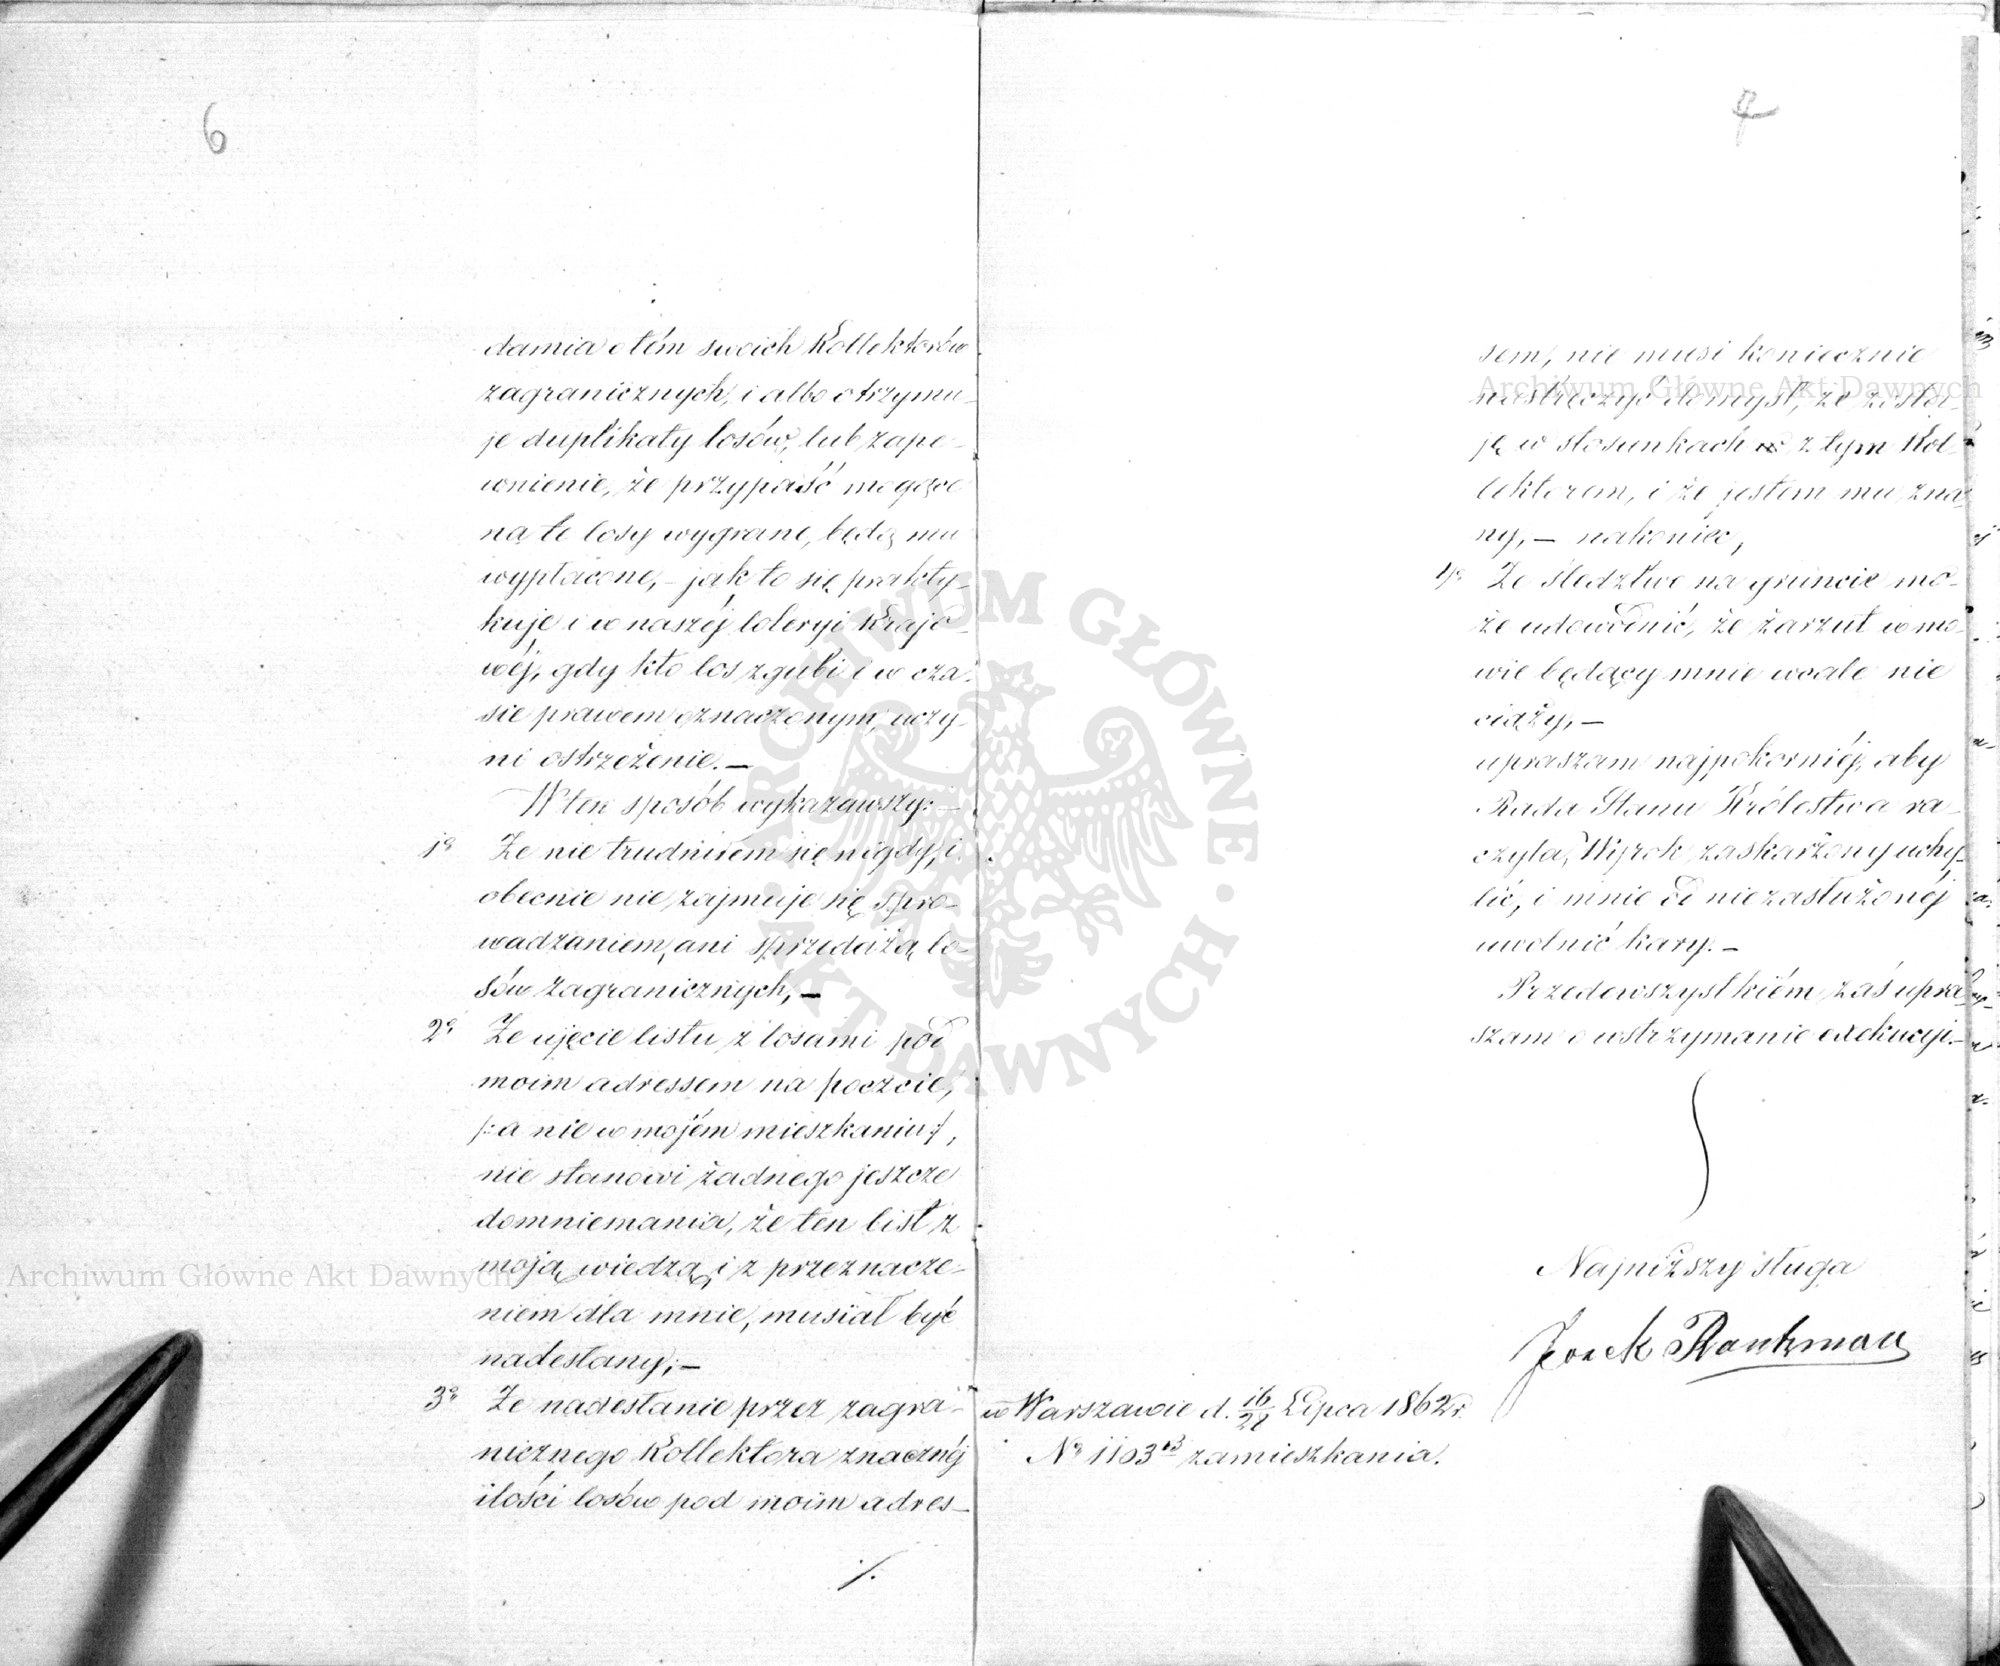 6
damia o tém swoich Kollektorów
zagranicznych, i albo otrzymu-
je duplikaty losów, lub zape-
wnienie, że przypaść mogące
na te losy wygrane, będą mu
wypłacone, - jak to się prakty-
kuje i w naszéj loteryi Krajo-
wéj, gdy kto los zgubi i w cza-
sie prawem oznaczonym, uczy-
ni ostrzeżenie. —
W ten sposób wykazawszy: —
1º Że nie trudniłem się nigdy, i
obecnie nie zajmuję się spro-
wadzaniem, ani sprzedażą lo-
sów zagranicznych, —
2º Że ujęcie listu z losami pod
moim adressem na poczcie,
/: a nie w mojém mieszkaniu :/,
nie stanowi żadnego jeszcze
domniemania, że ten list z
moją wiedzą, i z przeznacze-
niem dla mnie, musiał być
nadesłany, —
3º Że nadesłanie przez zagra-
nicznego Kollektora znacznéj
ilości losów pod moim adres-
/.
7
sem, nie musi koniecznie
nastręczyć domysł, że zosta-
ję w stosunkach z tym Kol-
lektorem, i że jestem mu zna-
ny, — nakoniec,
4º Że śledztwo na gruncie mo-
że udowodnić, że zarzut w mo-
wie będący mnie wcale nie
ciąży, —
upraszam najpokorniéj, aby
Rada Stanu Królestwa ra-
czyła, Wyrok zaskarżony uchy-
lić, i mnie od niezasłużonéj
uwolnić kary. —
Przedewszystkiém zaś upra-
szam o wstrzymanie exekucyi. —
Najniższy sługa
Josek
w Warszawie d. 16/28 Lipca 1862 r.
Nº 1103 zamieszkania.
Archiwum Główne Akt Dawnych
Archiwum Główne Akt Dawnych
ARCHIWUM GŁÓWNE · AKT DAWNYCH ·